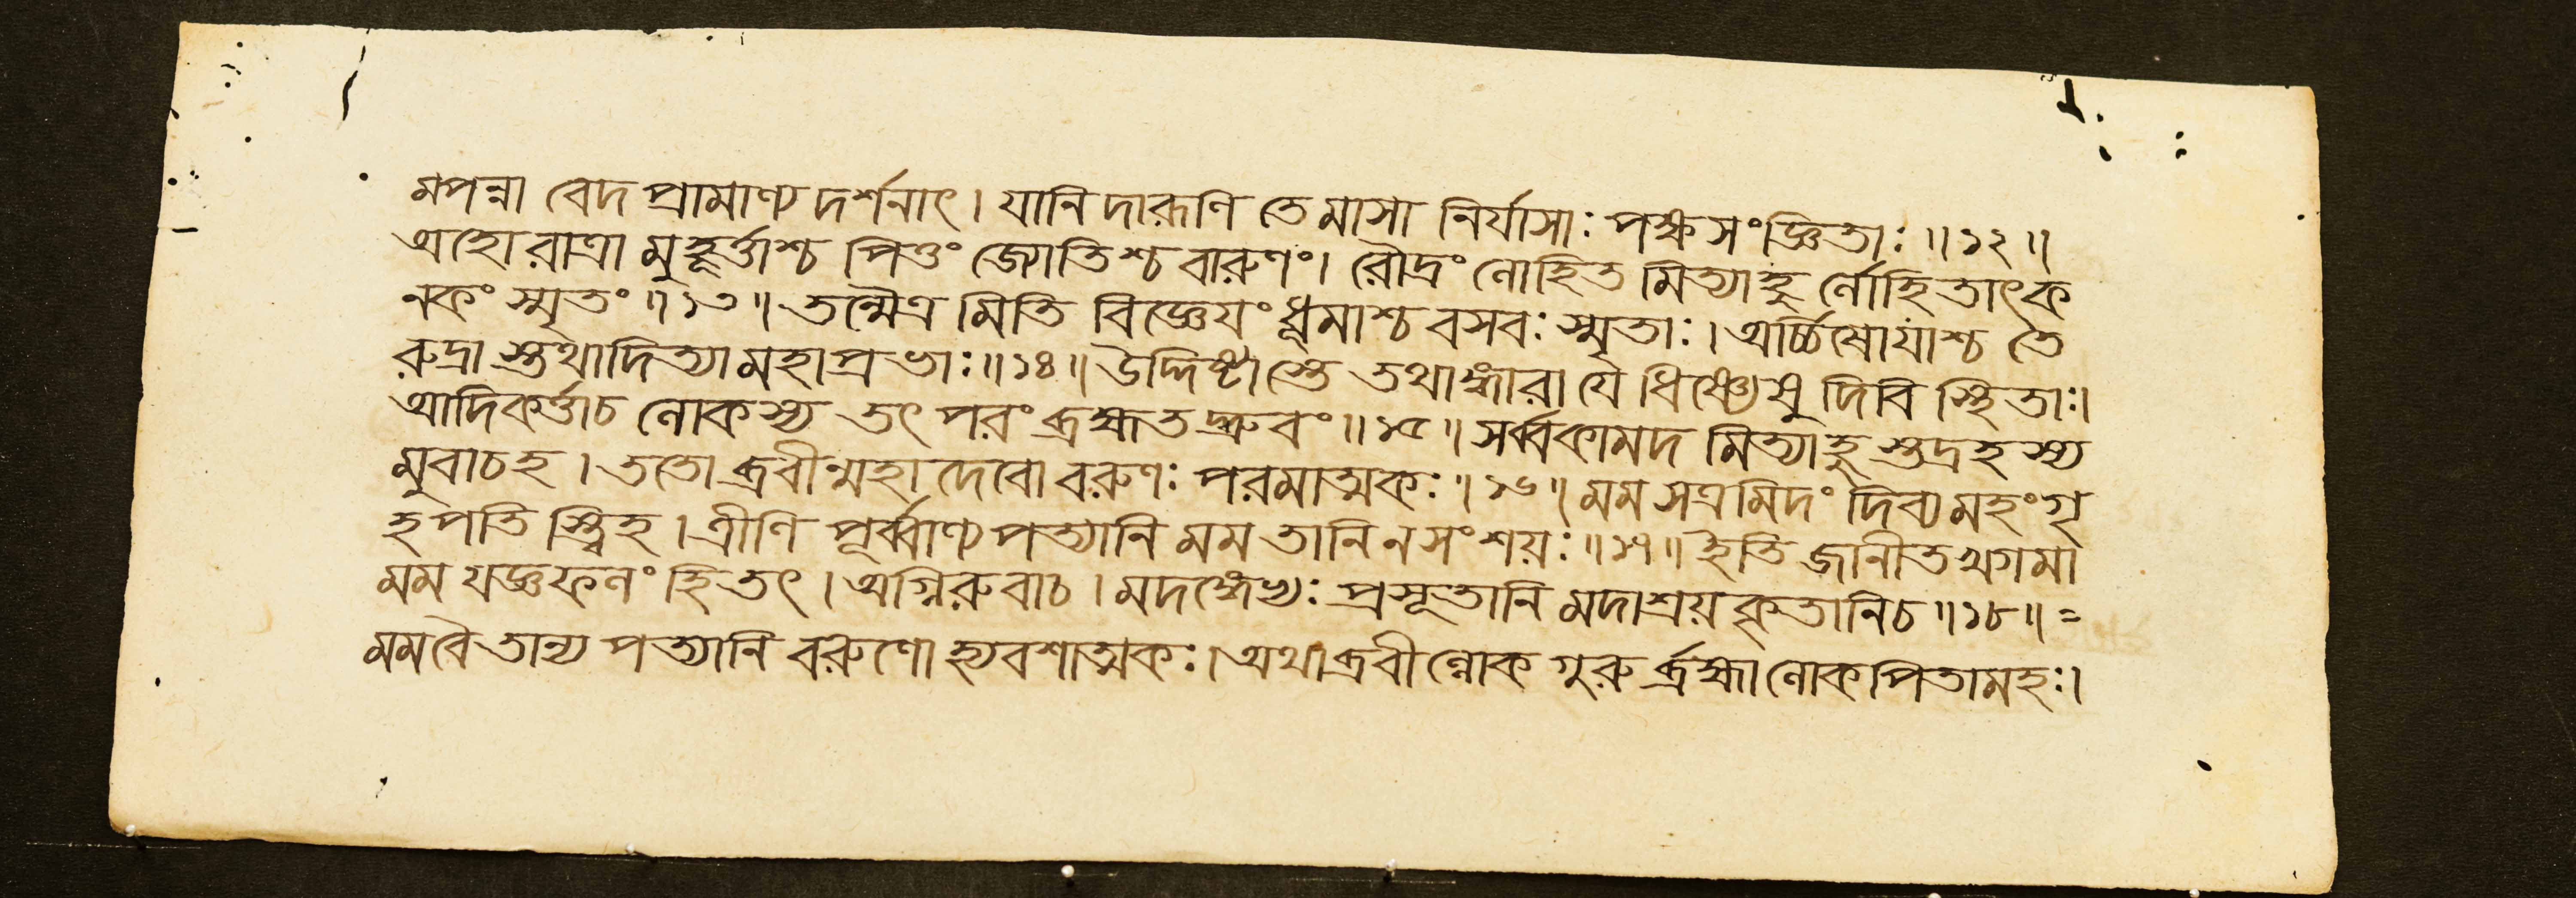 মপন্না বেদ প্রামাণ্য দর্শনাৎ । যানি দারূণি তে মাসা নির্যাসাঃ পক্ষসংজ্ঞিতাঃ ॥ ১২ ॥
অহোরাত্রা মুহূর্ত্তাশ্চ পিত্তং জ্যোতিশ্চ বারুণং । রৌদ্রং লোহিত মিত্যাহু র্লোহিতাৎক
নকং স্মৃতং ॥ ১৩ ॥ তন্মৈত্র মিতি বিজ্ঞেয়ং ধূমাশ্চ বসবঃ স্মৃতাঃ । অর্চ্চিষোযাশ্চ তে
রুদ্রা স্তথাদিত্যা মহাপ্রভাঃ ॥ ১৪ ॥ উদ্দিষ্টাস্তে তথাঙ্গারা যে ধিষ্ণ্যেষু দিবি স্থিতাঃ ।
আদিকর্ত্তাচ লোকস্য তৎ পরং ব্রহ্মতদ্ধ্রুবং ॥ ১৫ ॥ সর্ব্বকামদ মিত্যাহু স্তদ্রহস্য
মুবাচহ । ততো ব্রবীন্মহা দেবো বরুণঃ পরমাত্মকঃ ॥ ১৬ ॥ মম সত্রমিদং দিব্য মহংগৃ
হপতি স্ত্বিহ । ত্রীণি পূর্ব্বাণ্যপত্যানি মম তানি ন সংশয়ঃ ॥ ১৭ ॥ ইতি জানীত খগমা
মম যজ্ঞফলং হিতৎ । অগ্নিরুবাচ । মদঙ্গেভ্যঃ প্রসূতানি মদাশ্রয় কৃতানিচ ॥ ১৮ ॥ =
মমবৈ তান্য পত্যানি বরুণো হ্যবশাত্মকঃ । অথাব্রবীল্লোক গুরু র্ব্রহ্মা লোকপিতামহঃ ।